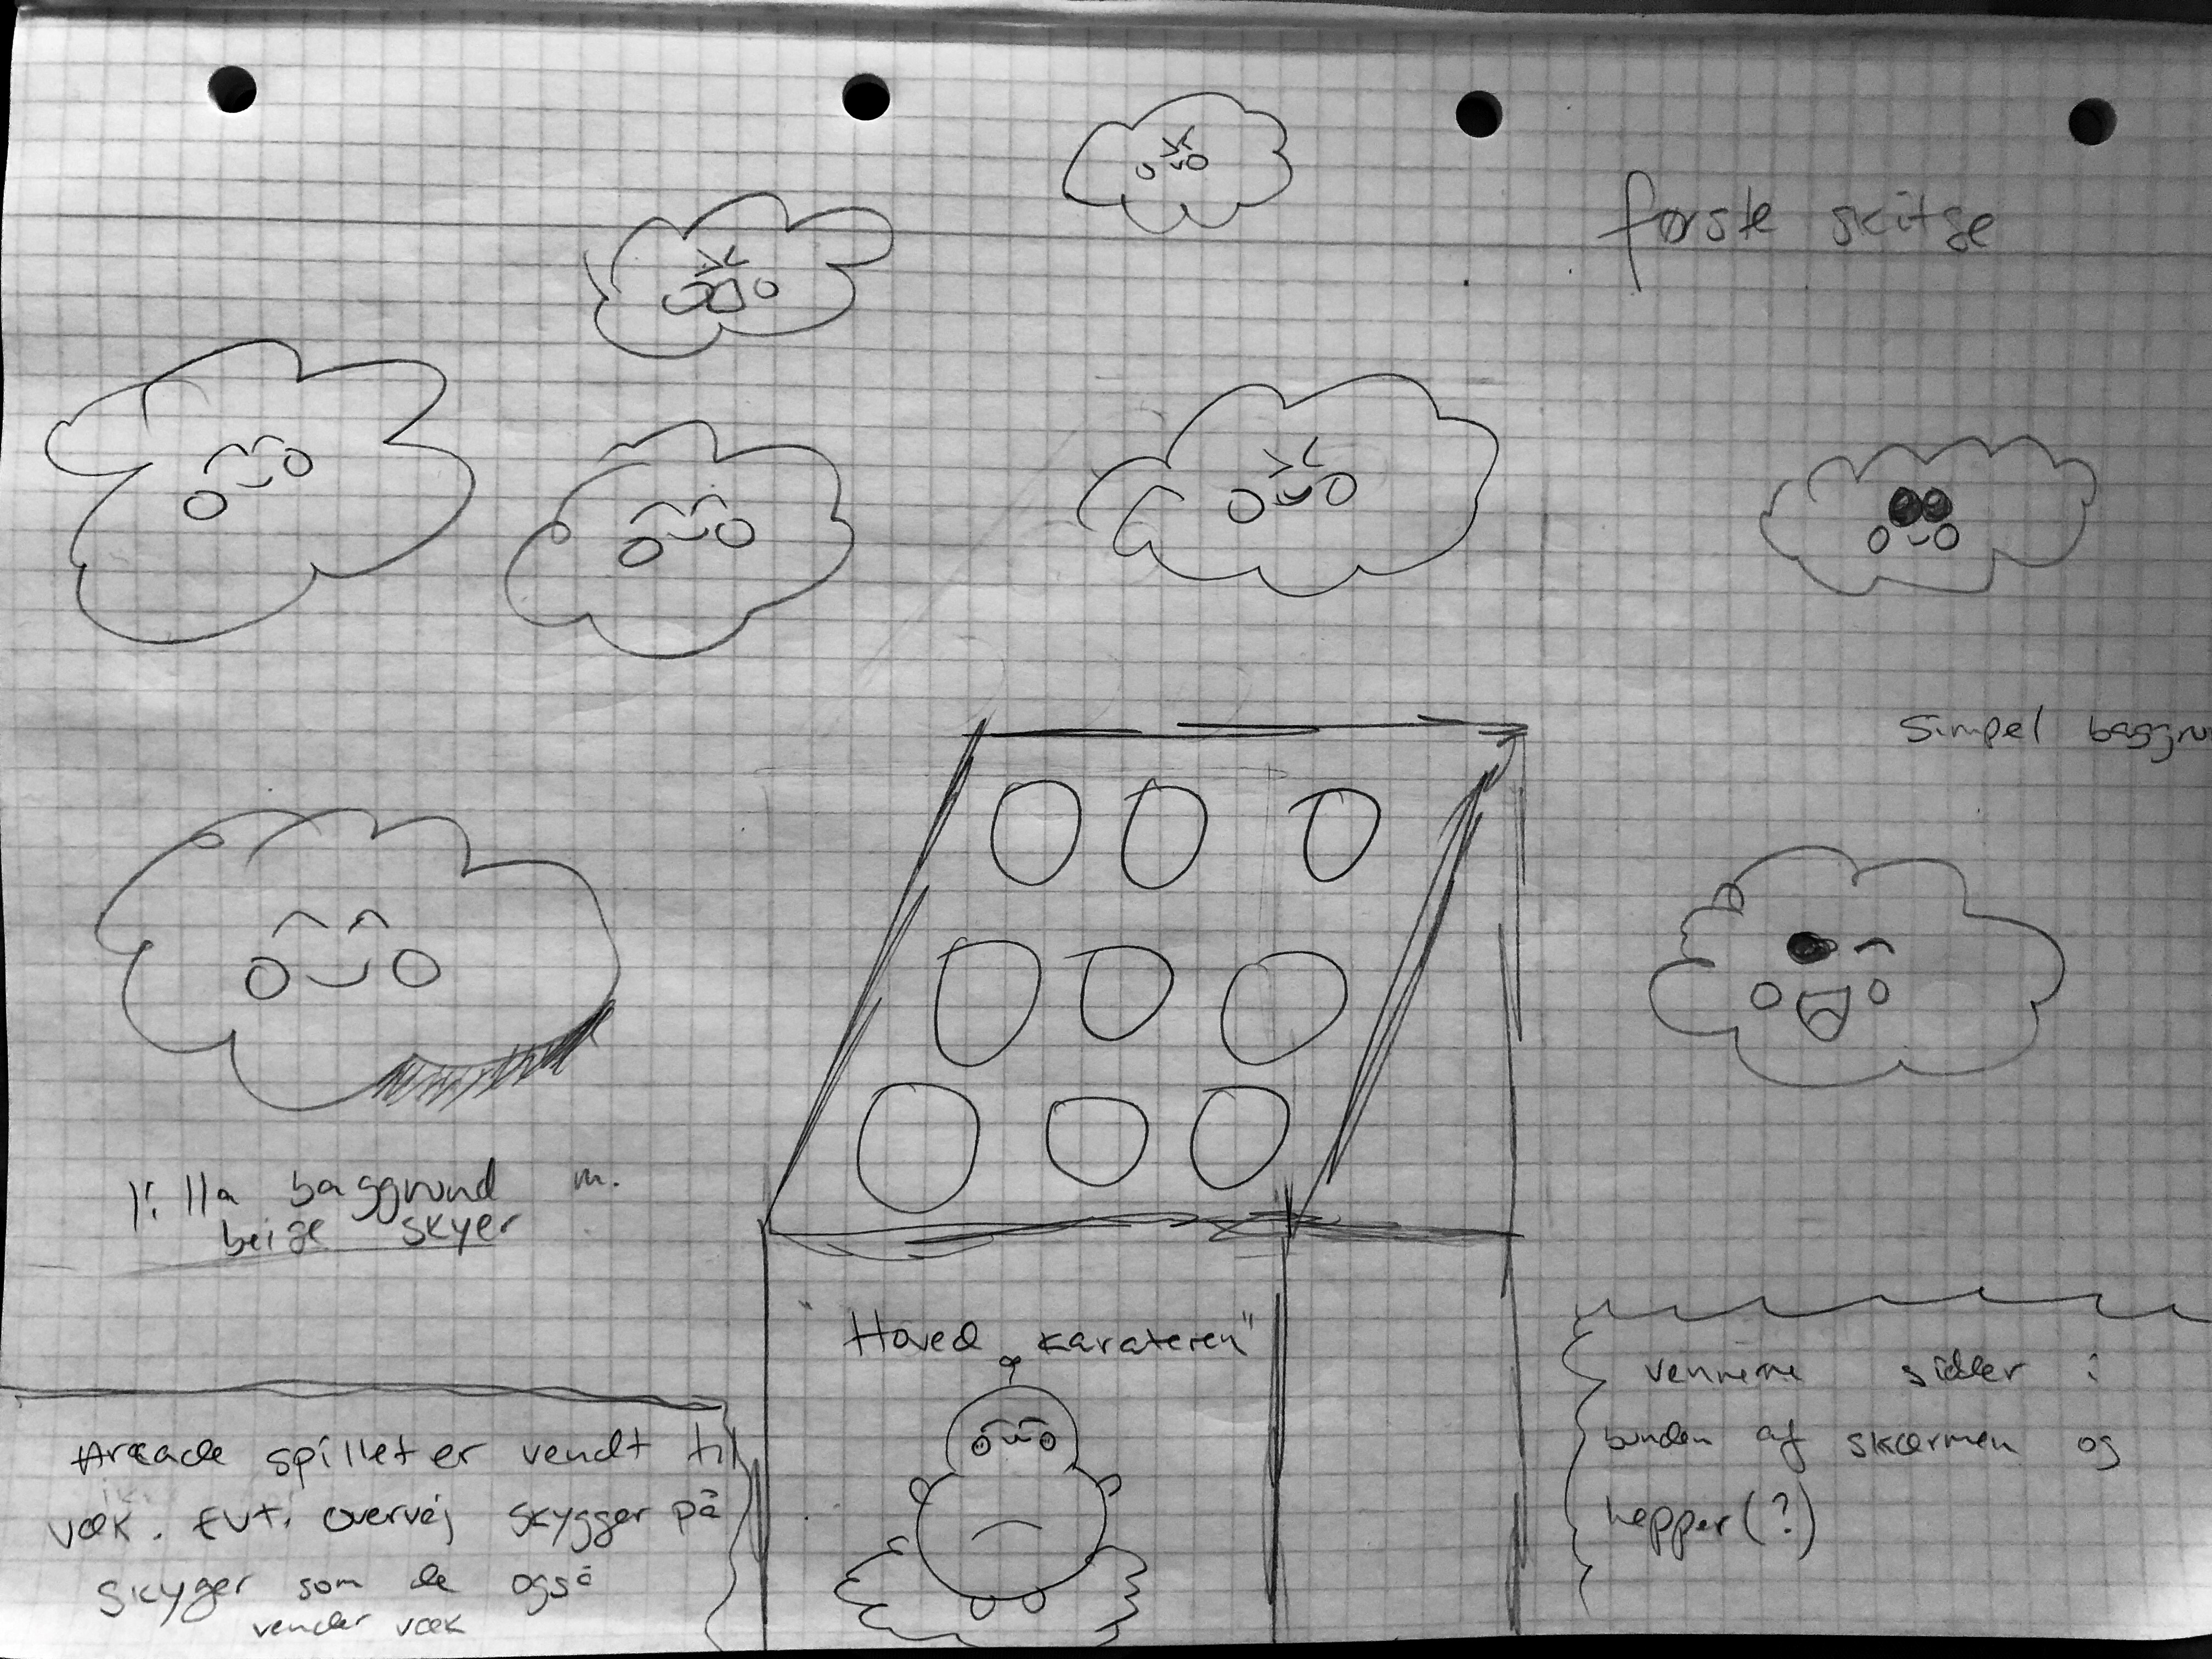 første skitse
Simpel baggru
lilla baggrund m.
beige skyer
"Hoved karateren"
Arcade spillet er vendt til
væk. Evt. overvej skygger på
skyger som de også
vender væk
vennerne sidder i
bunden af skærmen og
hepper(?)